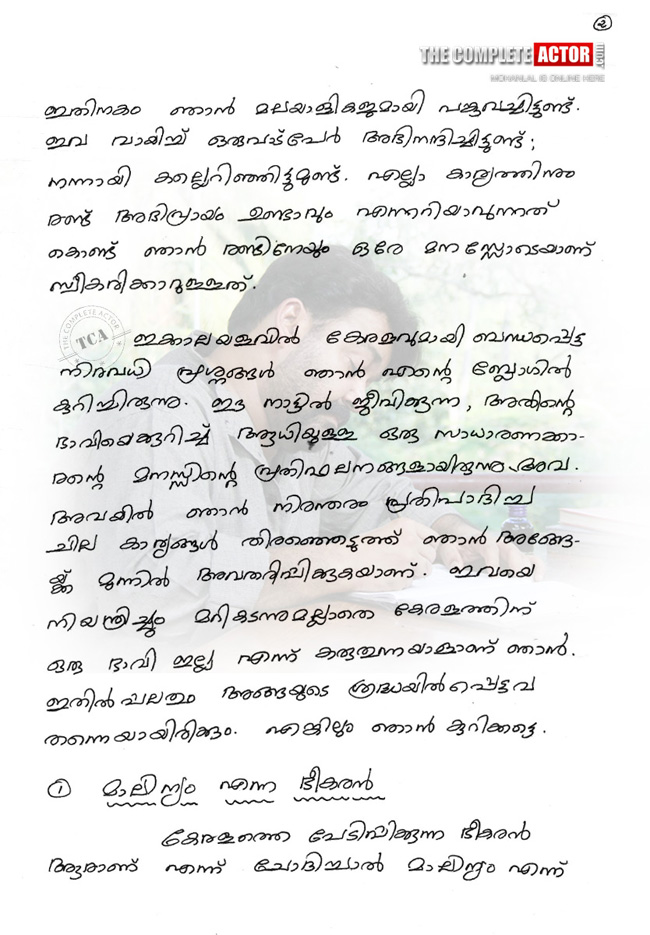 ②
THE COMPLETE ACTOR
MOHANLAL IS ONLINE HERE
ഇതിനകം ഞാൻ മലയാളികളുമായി പങ്കുവച്ചിട്ടുണ്ട്.
ഇവ വായിച്ച് ഒരുപാട്പേർ അഭിനന്ദിച്ചിട്ടുണ്ട്;
നന്നായി കല്ലെറിഞ്ഞിട്ടുമുണ്ട്. എല്ലാ കാര്യത്തിനും
രണ്ട് അഭിപ്രായം ഉണ്ടാവും എന്നറിയാവുന്നത്
കൊണ്ട് ഞാൻ രണ്ടിനേയും ഒരേ മനസ്സോടെയാണ്
സ്വീകരിക്കാറുള്ളത്.
THE COMPLETE ACTOR
TCA
ഇക്കാലയളവിൽ കേരളവുമായി ബന്ധപ്പെട്ട
നിരവധി പ്രശ്നങ്ങൾ ഞാൻ എന്റെ ബ്ലോഗിൽ
കുറിച്ചിരുന്നു. ഈ നാട്ടിൽ ജീവിക്കുന്ന, അതിന്റെ
ഭാവിയെക്കുറിച്ച് ആധിയുള്ള ഒരു സാധാരണക്കാ-
രന്റെ മനസ്സിന്റെ പ്രതിഫലനങ്ങളായിരുന്നു അവ.
അവയിൽ ഞാൻ നിരന്തരം പ്രതിപാദിച്ച
ചില കാര്യങ്ങൾ തിരഞ്ഞെടുത്ത് ഞാൻ അങ്ങേ-
യ്ക്ക് മുന്നിൽ അവതരിപ്പിക്കുകയാണ്. ഇവയെ
നിയന്ത്രിച്ചും മറികടന്നുമല്ലാതെ കേരളത്തിന്
ഒരു ഭാവി ഇല്ല എന്ന് കരുതുന്നയാളാണ് ഞാൻ.
ഇതിൽ പലതും അങ്ങയുടെ ശ്രദ്ധയിൽപ്പെട്ടവ
തന്നെയായിരിക്കും. എങ്കിലും ഞാൻ കുറിക്കട്ടെ.
① മാലിന്യം എന്ന ഭീകരൻ
കേരളത്തെ പേടിപ്പിക്കുന്ന ഭീകരൻ
ആരാണ് എന്ന് ചോദിച്ചാൽ മാലിന്യം എന്ന്